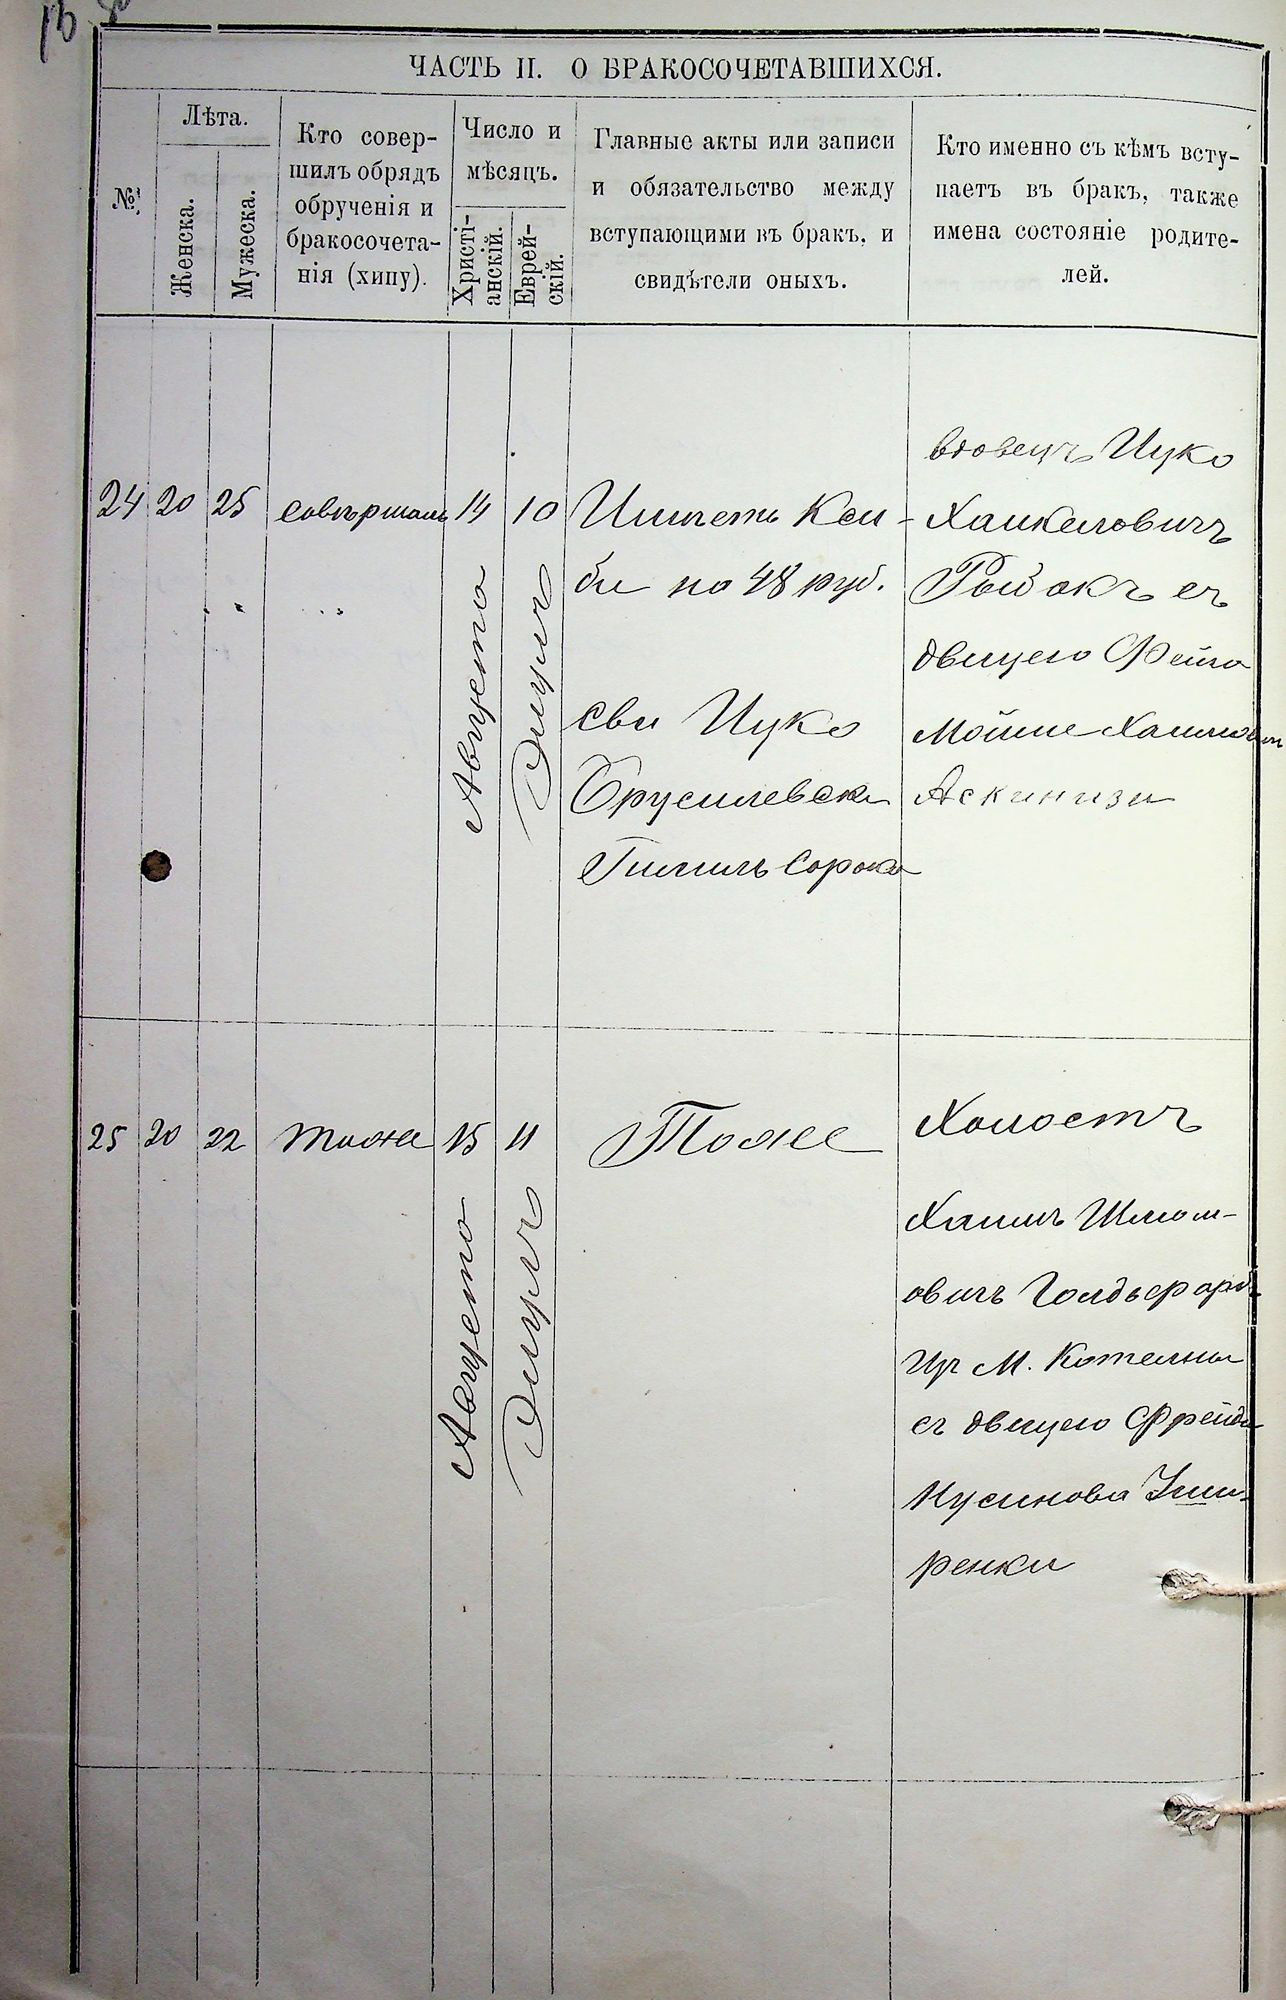 ЧАСТЬ II. О БРАКОСОЧЕТАВШИХСЯ.
№
Лѣта.
Женска.
Мужеска.
Кто совер-
шилъ обрядъ
обрученія и
бракосочета-
нія (хипу).
Число и
мѣсяцъ.
Христі-
анскій.
Еврей-
скій.
Главные акты или записи
и обязательство между
вступающими въ бракъ, и
свидѣтели оныхъ.
Кто именно съ кѣмъ всту-
паетъ въ бракъ, также
имена состояніе родите-
лей.
24 20 25 14 Августа 10 Элулъ
по 48 руб.
сви Ицко
Брусилевски
Сорока
вдовецъ Ицко
Хаикеловичъ
съ
двицею Фейга
Мойше
Аскинизи
25 20 22 тоже 15 Августа 11 Элулъ
Тоже
Холостъ
Хаимъ Шлиом-
овичъ Голдьфарбъ
Из М. Котелны
съ двицею Фрейда
Нусинова
ренки